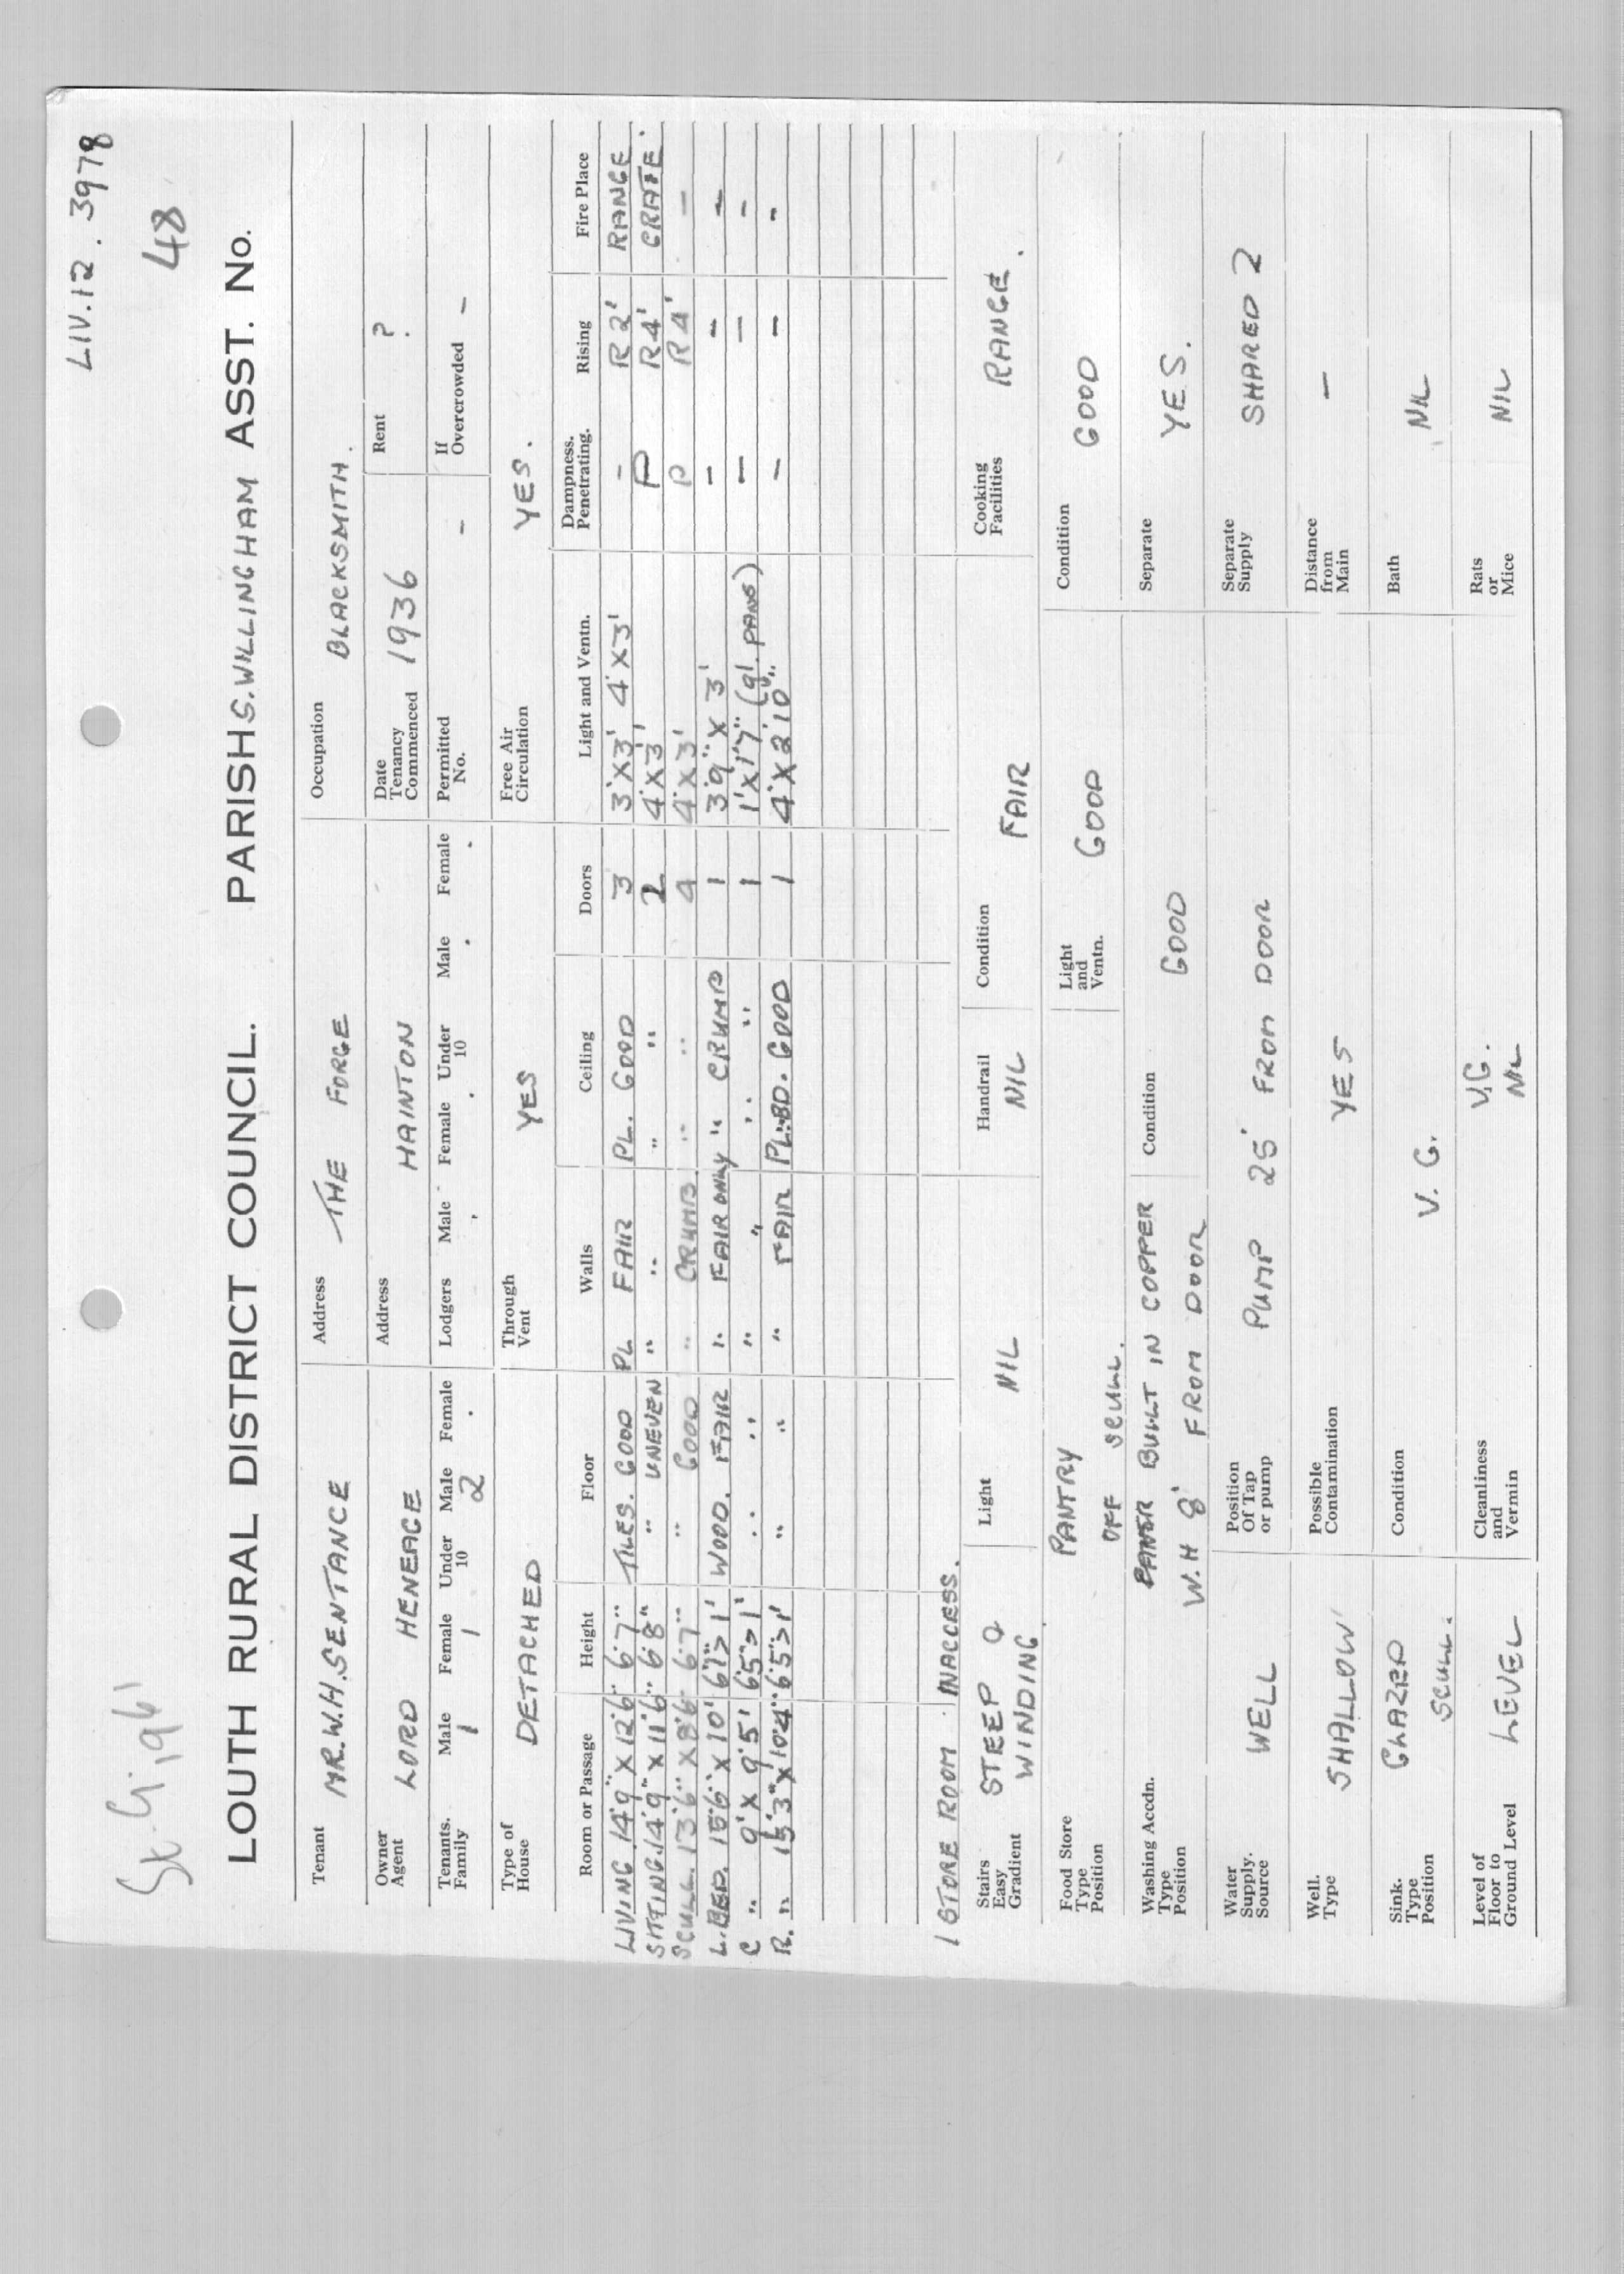 LIV.12.3978
48
LOUTH RURAL DISTRICT COUNCIL. PARISH S. WILLINGHAM ASST. No.
Tenant MR. W.H. SENTANCE Address THE FORGE Occupation BLACKSMITH.
Owner Agent LORD HENEAGE Address HAINTON Date Tenancy Commenced 1936 Rent ?
Tenants. Family Male 1 Female 1 Under 10 Male 2 Female . Lodgers Male . Female . Under 10 Male . Female . Permitted No. - If Overcrowded -
Type of House DETACHED Through Vent YES Free Air Circulation YES.
Room or Passage Height Floor Walls Ceiling Doors Light and Ventn. Dampness. Penetrating. Rising Fire Place
LIVING. 14'9" X 12'6" 6'7" TILES. GOOD PL FAIR PL. GOOD 3 3'X3' 4'X3' - R 2' RANGE
SITTING. 14'9" X 11'6" 6'8" " UNEVEN " " " " 2 4'X3' P R4' GRATE.
SCULL. 13'6" X 8'6" 6'7" " GOOD " CRUMB. " " 4 4'X3' P R4' -
L. BED. 15'6" X 10' 6'7">1' WOOD. FAIR " FAIR ONLY " CRUMB 1 3'9" X 3' - - -
C " 9' X 9'5' 6'5">1' " " " " " " 1 1'X1'7" (gl. PANE) - - -
R. " 15'3" X 10'4" 6'5">1' " " " FAIR PL.BD. GOOD 1 4'X2'10" - - -
1 STORE ROOM INACCESS.
Stairs Easy Gradient STEEP & WINDING Light NIL Handrail NIL Condition FAIR Cooking Facilities RANGE.
Food Store Type Position PANTRY OFF SCULL. Light and Ventn. GOOD Condition GOOD
Washing Accdn. Type Position BUILT IN COPPER W.H 8' FROM DOOR Condition GOOD Separate YES.
Water Supply. Source WELL Position Of Tap or pump PUMP 25' FROM DOOR Separate Supply SHARED 2
Well. Type SHALLOW Possible Contamination YES Distance from Main -
Sink. Type Position GLAZED SCULL. Condition V. G. Bath NIL
Level of Floor to Ground Level LEVEL Cleanliness and Vermin V.G. NIL Rats or Mice NIL